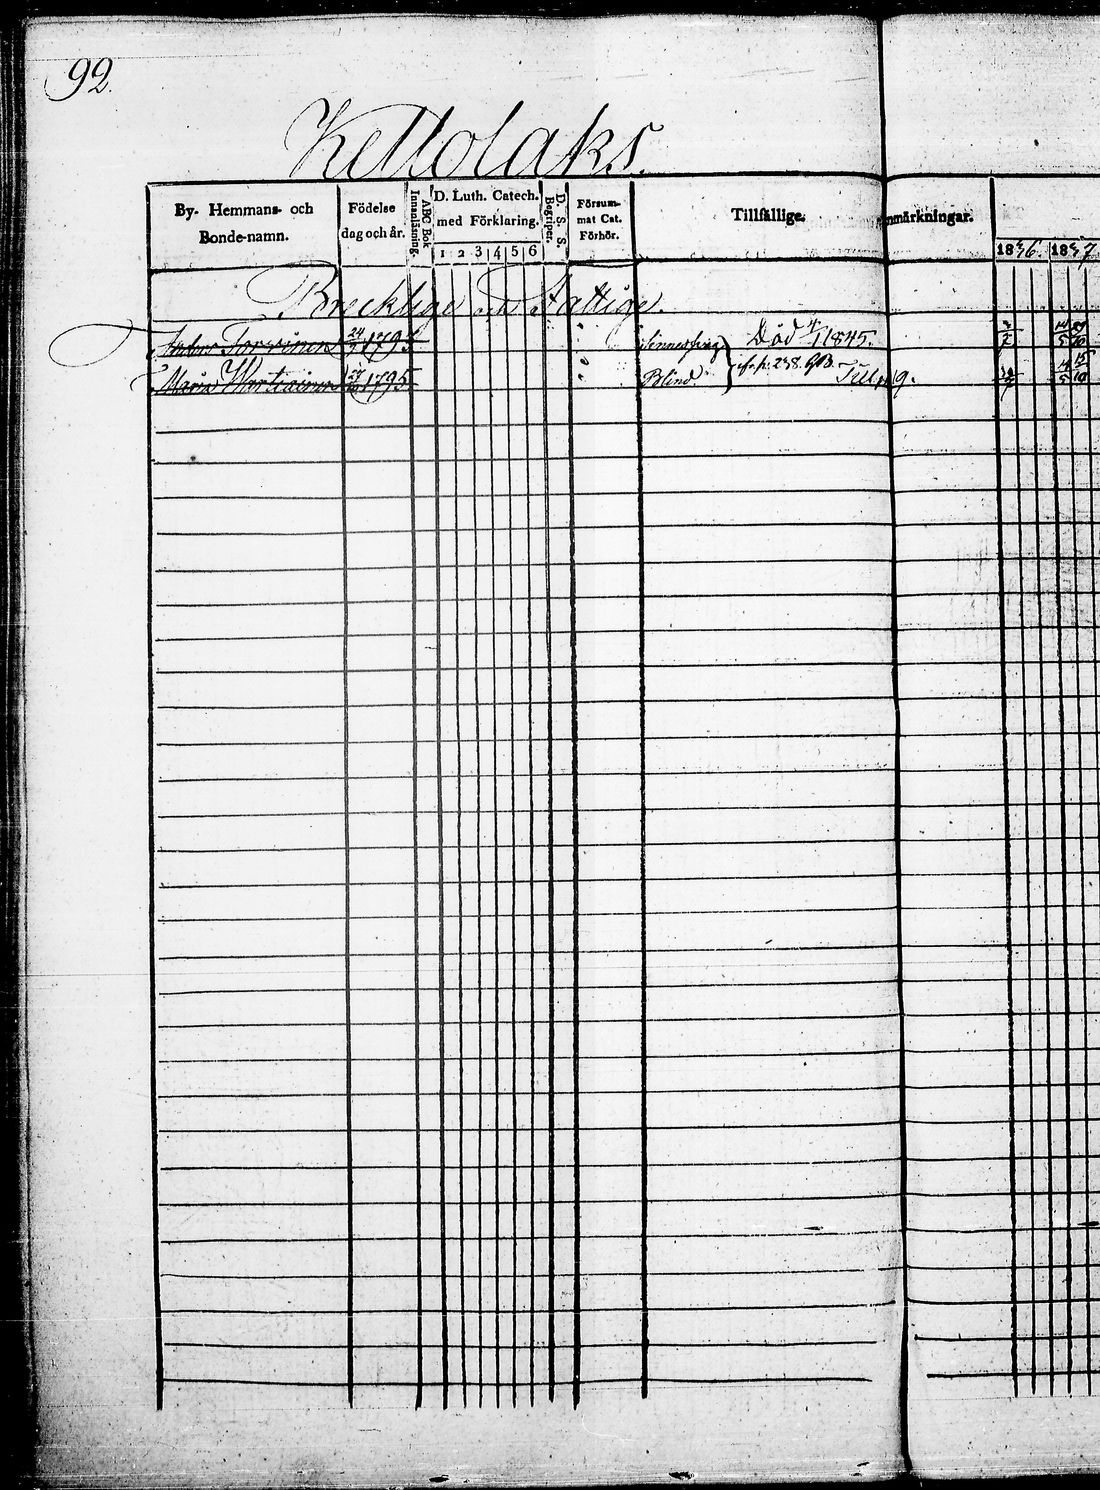 92.
Keltolaks.
By- Hemmans- och
Bonde-namn.
Födelse
dag och år.
ABC Bok
Innanläsning.
D. Luth. Catech.
med Förklaring.
1 2 3 4 5 6
D. S. S.
Begriper.
Försum-
mat Cat.
Förhör.
Tillfällige.
nmärkningar.
1836. 1837
Bräcklige och Fattige.
Anders Torvinen 1795 Sinnessvag Död 1845.
Maria 1795 Blind cfr. p. 238. Till p. 9.